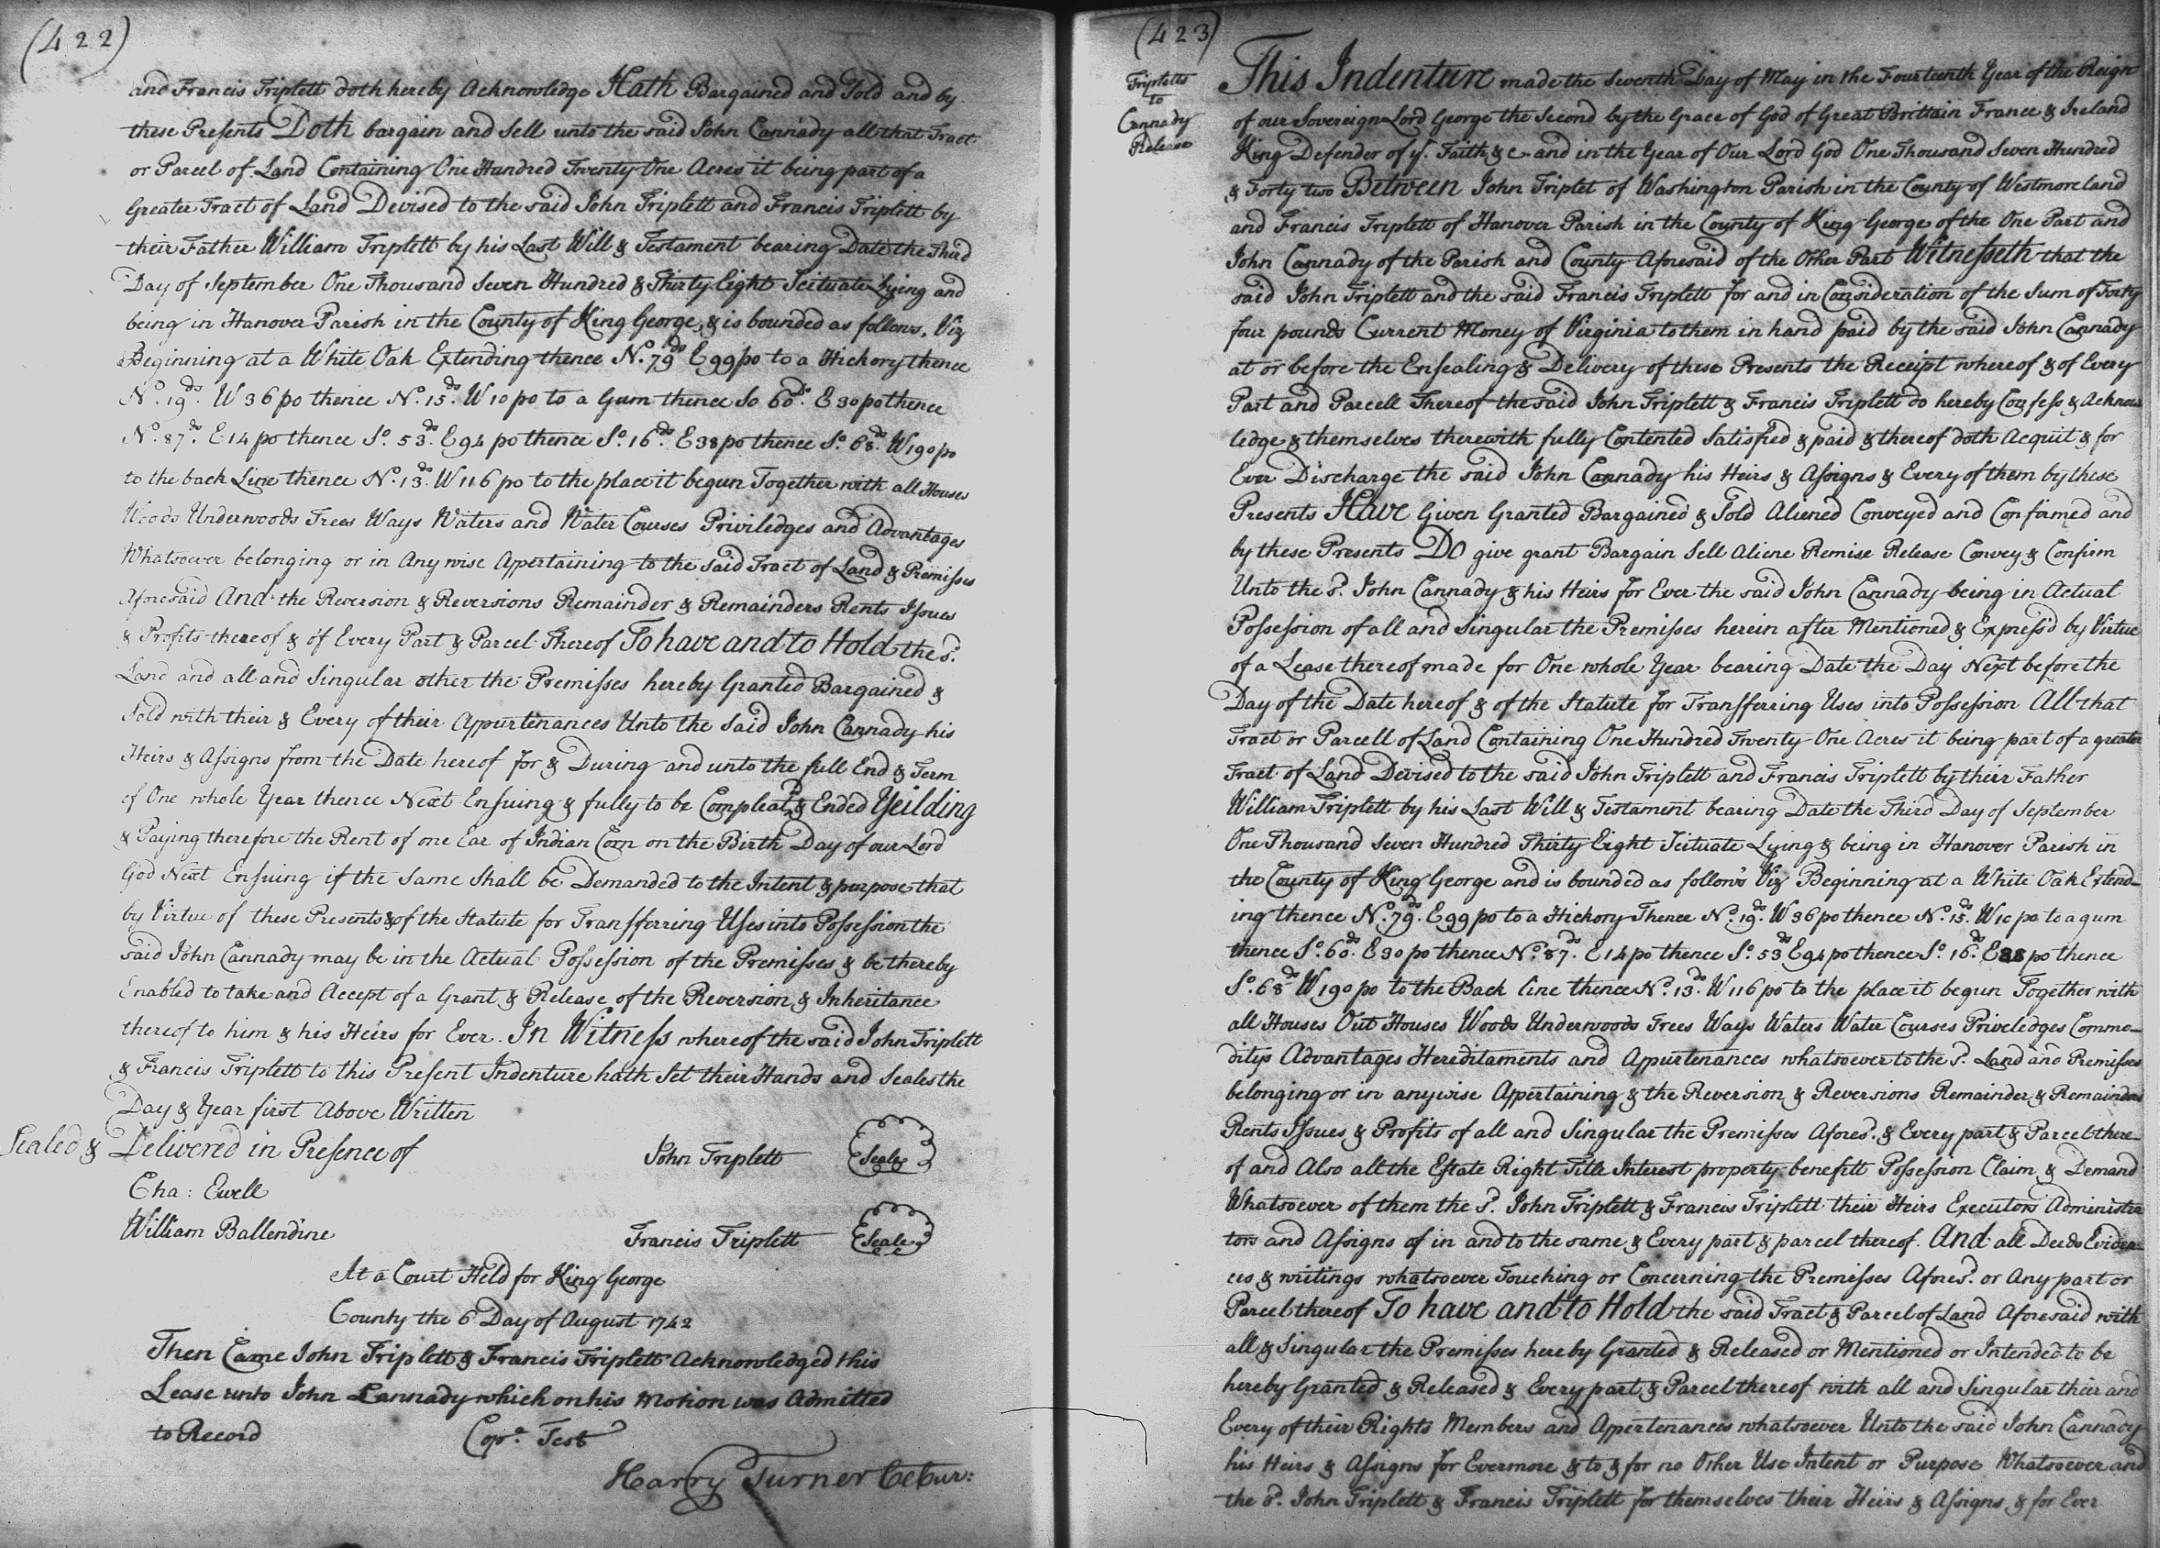 (422)
and Francis Triplett doth hereby Acknowledge Hath Bargained and Sold and by
these Presents Doth bargain and Sell unto the said John Cannady all that Tract
or Parcel of Land Containing One Hundred Twenty One Acres it being part of a
Greater Tract of Land Devised to the said John Triplett and Francis Triplett by
their Father William Triplett by his Last Will & Testament bearing Date the Third
Day of September One Thousand Seven Hundred & Thirty Eight Scituate Lying and
being in Hanover Parish in the County of King George & is bounded as follows, Viz
Beginning at a White Oak Extending thence No. 79ds. E 99 po to a Hickory thence
No. 19ds. W 36 po thence No. 15ds. W 10 po to a Gum thence So 60ds. E 30 po thence
No. 87ds. E 14 po thence So. 53ds. E 94 po thence So. 16ds. E 38 po thence So. 68ds. W 190 po
to the back Line thence No. 13ds. W 116 po to the place it begun Together with all Houses
Woods Underwoods Trees Ways Waters and Water Courses Priviledges and Advantages
Whatsoever belonging or in Any wise Appertaining to the said Tract of Land & Premisses
Aforesaid And the Reversion & Reversions Remainder & Remainders Rents Issues
& Profits thereof & of Every Part & Parcel Thereof To have and to Hold the sd.
Land and all and Singular other the Premisses hereby Granted Bargained &
Sold with their & Every of their Appurtenances Unto the said John Cannady his
Heirs & Assigns from the Date hereof for & During and unto the full End & Term
of One whole Year thence Next Ensuing & fully to be Compleatd & Ended Yeilding
& Paying therefore the Rent of one Ear of Indian Corn on the Birth Day of our Lord
God Next Ensuing if the Same Shall be Demanded to the Intent & purpose that
by Virtue of these Presents & of the Statute for Transferring Uses into Possession the
said John Cannady may be in the Actual Possession of the Premisses & be thereby
Enabled to take and Accept of a Grant & Release of the Reversion & Inheritance
thereof to him & his Heirs for Ever. In Witness whereof the said John Triplett
& Francis Triplett to this Present Indenture hath Set their Hands and Seales the
Day & Year first Above Written
Sealed & Delivered in Presence of
John Triplett Seale
Cha: Ewell
William Ballendine
Francis Triplett Seale
At a Court Held for King George
County the 6 Day of August 1742
Then Came John Triplett & Francis Triplett Acknowledged this
Lease unto John Cannady which on his Motion was Admitted
to Record
Copa. Test
Harry Turner ClCur:
(423)
Tripletts
to
Cannady
Release
This Indenture made the Seventh Day of May in the Fourteenth Year of the Reign
of our Sovereign Lord George the Second by the Grace of God of Great Brittain France & Ireland
King Defender of ye. Faith &c and in the Year of Our Lord God One Thousand Seven Hundred
& Forty two Between John Triplet of Washington Parish in the County of Westmoreland
and Francis Triplett of Hanover Parish in the County of King George of the One Part and
John Cannady of the Parish and County Aforesaid of the Other Part Witnesseth that the
said John Triplett and the said Francis Triplett for and in Consideration of the Sum of Forty
four pounds Current Money of Virginia to them in hand paid by the said John Cannady
at or before the Ensealing & Delivery of these Presents the Receipt whereof & of Every
Part and Parcell Thereof the said John Triplett & Francis Triplett do hereby Confess & Acknow
ledge & themselves therewith fully Contented Satisfied & paid & thereof doth Acquit & for
Ever Discharge the said John Cannady his Heirs & Assigns & Every of them by these
Presents Have Given Granted Bargained & Sold Aliened Conveyed and Confirmed and
by these Presents Do give grant Bargain Sell Aliene Remise Release Convey & Confirm
Unto the sd. John Cannady & his Heirs for Ever the said John Cannady being in Actual
Possession of all and Singular the Premisses herein after Mentioned & Express'd by Virtue
of a Lease thereof made for One whole Year bearing Date the Day Next before the
Day of the Date hereof & of the Statute for Transferring Uses into Possession All that
Tract or Parcell of Land Containing One Hundred Twenty One Acres it being part of a greater
Tract of Land Devised to the said John Triplett and Francis Triplett by their Father
William Triplett by his Last Will & Testament bearing Date the Third Day of September
One Thousand Seven Hundred Thirty Eight Scituate Lying & being in Hanover Parish in
the County of King George and is bounded as follows Viz Beginning at a White Oak Extend-
ing thence No. 79ds. E 99 po to a Hickory Thence No. 19ds. W 36 po thence No. 15ds. W 10 po to a gum
thence So. 60ds. E 30 po thence No. 87ds. E 14 po thence So. 53ds E 94 po thence So. 16ds. E 38 po thence
So. 68ds W 190 po to the Back line thence No. 13ds. W 116 po to the place it begun Together with
all Houses Out Houses Woods Underwoods Trees Ways Waters Water Courses Priveledges Commo-
ditys Advantages Hereditaments and Appurtenances whatsoever to the sd. Land and Premisses
belonging or in any wise Appertaining & the Reversion & Reversions Remainder & Remainders
Rents Issues & Profits of all and Singular the Premisses Aforesd. & Every part & Parcel there-
of and Also all the Estate Right Title Interest property benefitt Possession Claim & Demand
Whatsoever of them the sd. John Triplett & Francis Triplett their Heirs Executors Administra
tors and Assigns of in and to the same & Every part & parcel thereof. And all Deeds Eviden-
ces & writings whatsoever Touching or Concerning the Premisses Aforesd. or Any part or
Parcel thereof To have and to Hold the said Tract & Parcel of Land Aforesaid with
all & Singular the Premisses hereby Granted & Released or Mentioned or Intended to be
hereby Granted & Released & Every part & Parcel thereof with all and Singular their and
Every of their Rights Members and Appertenances whatsoever Unto the said John Cannady
his Heirs & Assigns for Evermore & to & for no Other Use Intent or Purpose Whatsoever and
the sd. John Triplett & Francis Triplett for themselves their Heirs & Assigns & for Ever